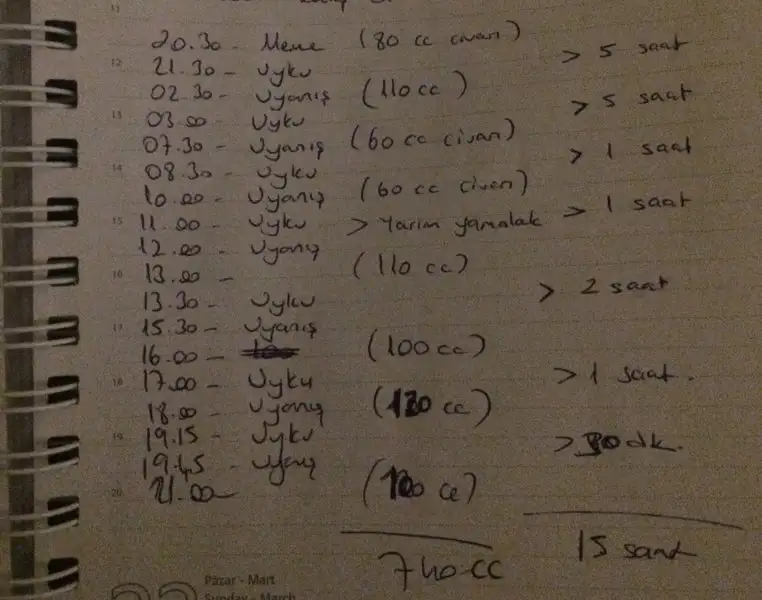 20.30 - Meme (80 cc civarı)
21.30 - Uyku > 5 saat
02.30 - Uyanış (110 cc)
03.00 - Uyku > 5 saat
07.30 - Uyanış (60 cc civarı)
08.30 - Uyku > 1 saat
10.00 - Uyanış (60 cc civarı)
11.00 - Uyku > Yarım yamalak > 1 saat
12.00 - Uyanış
13.00 - (110 cc)
13.30 - Uyku > 2 saat
15.30 - Uyanış
16.00 - (100 cc)
17.00 - Uyku > 1 saat.
18.00 - Uyanış (120 cc)
19.15 - Uyku > 30 dk.
19.45 - Uyanış
21.00 - (100 cc)
740 cc 15 saat
Pazar - Mart
Sunday - March
11
12
13
14
15
16
17
18
19
20